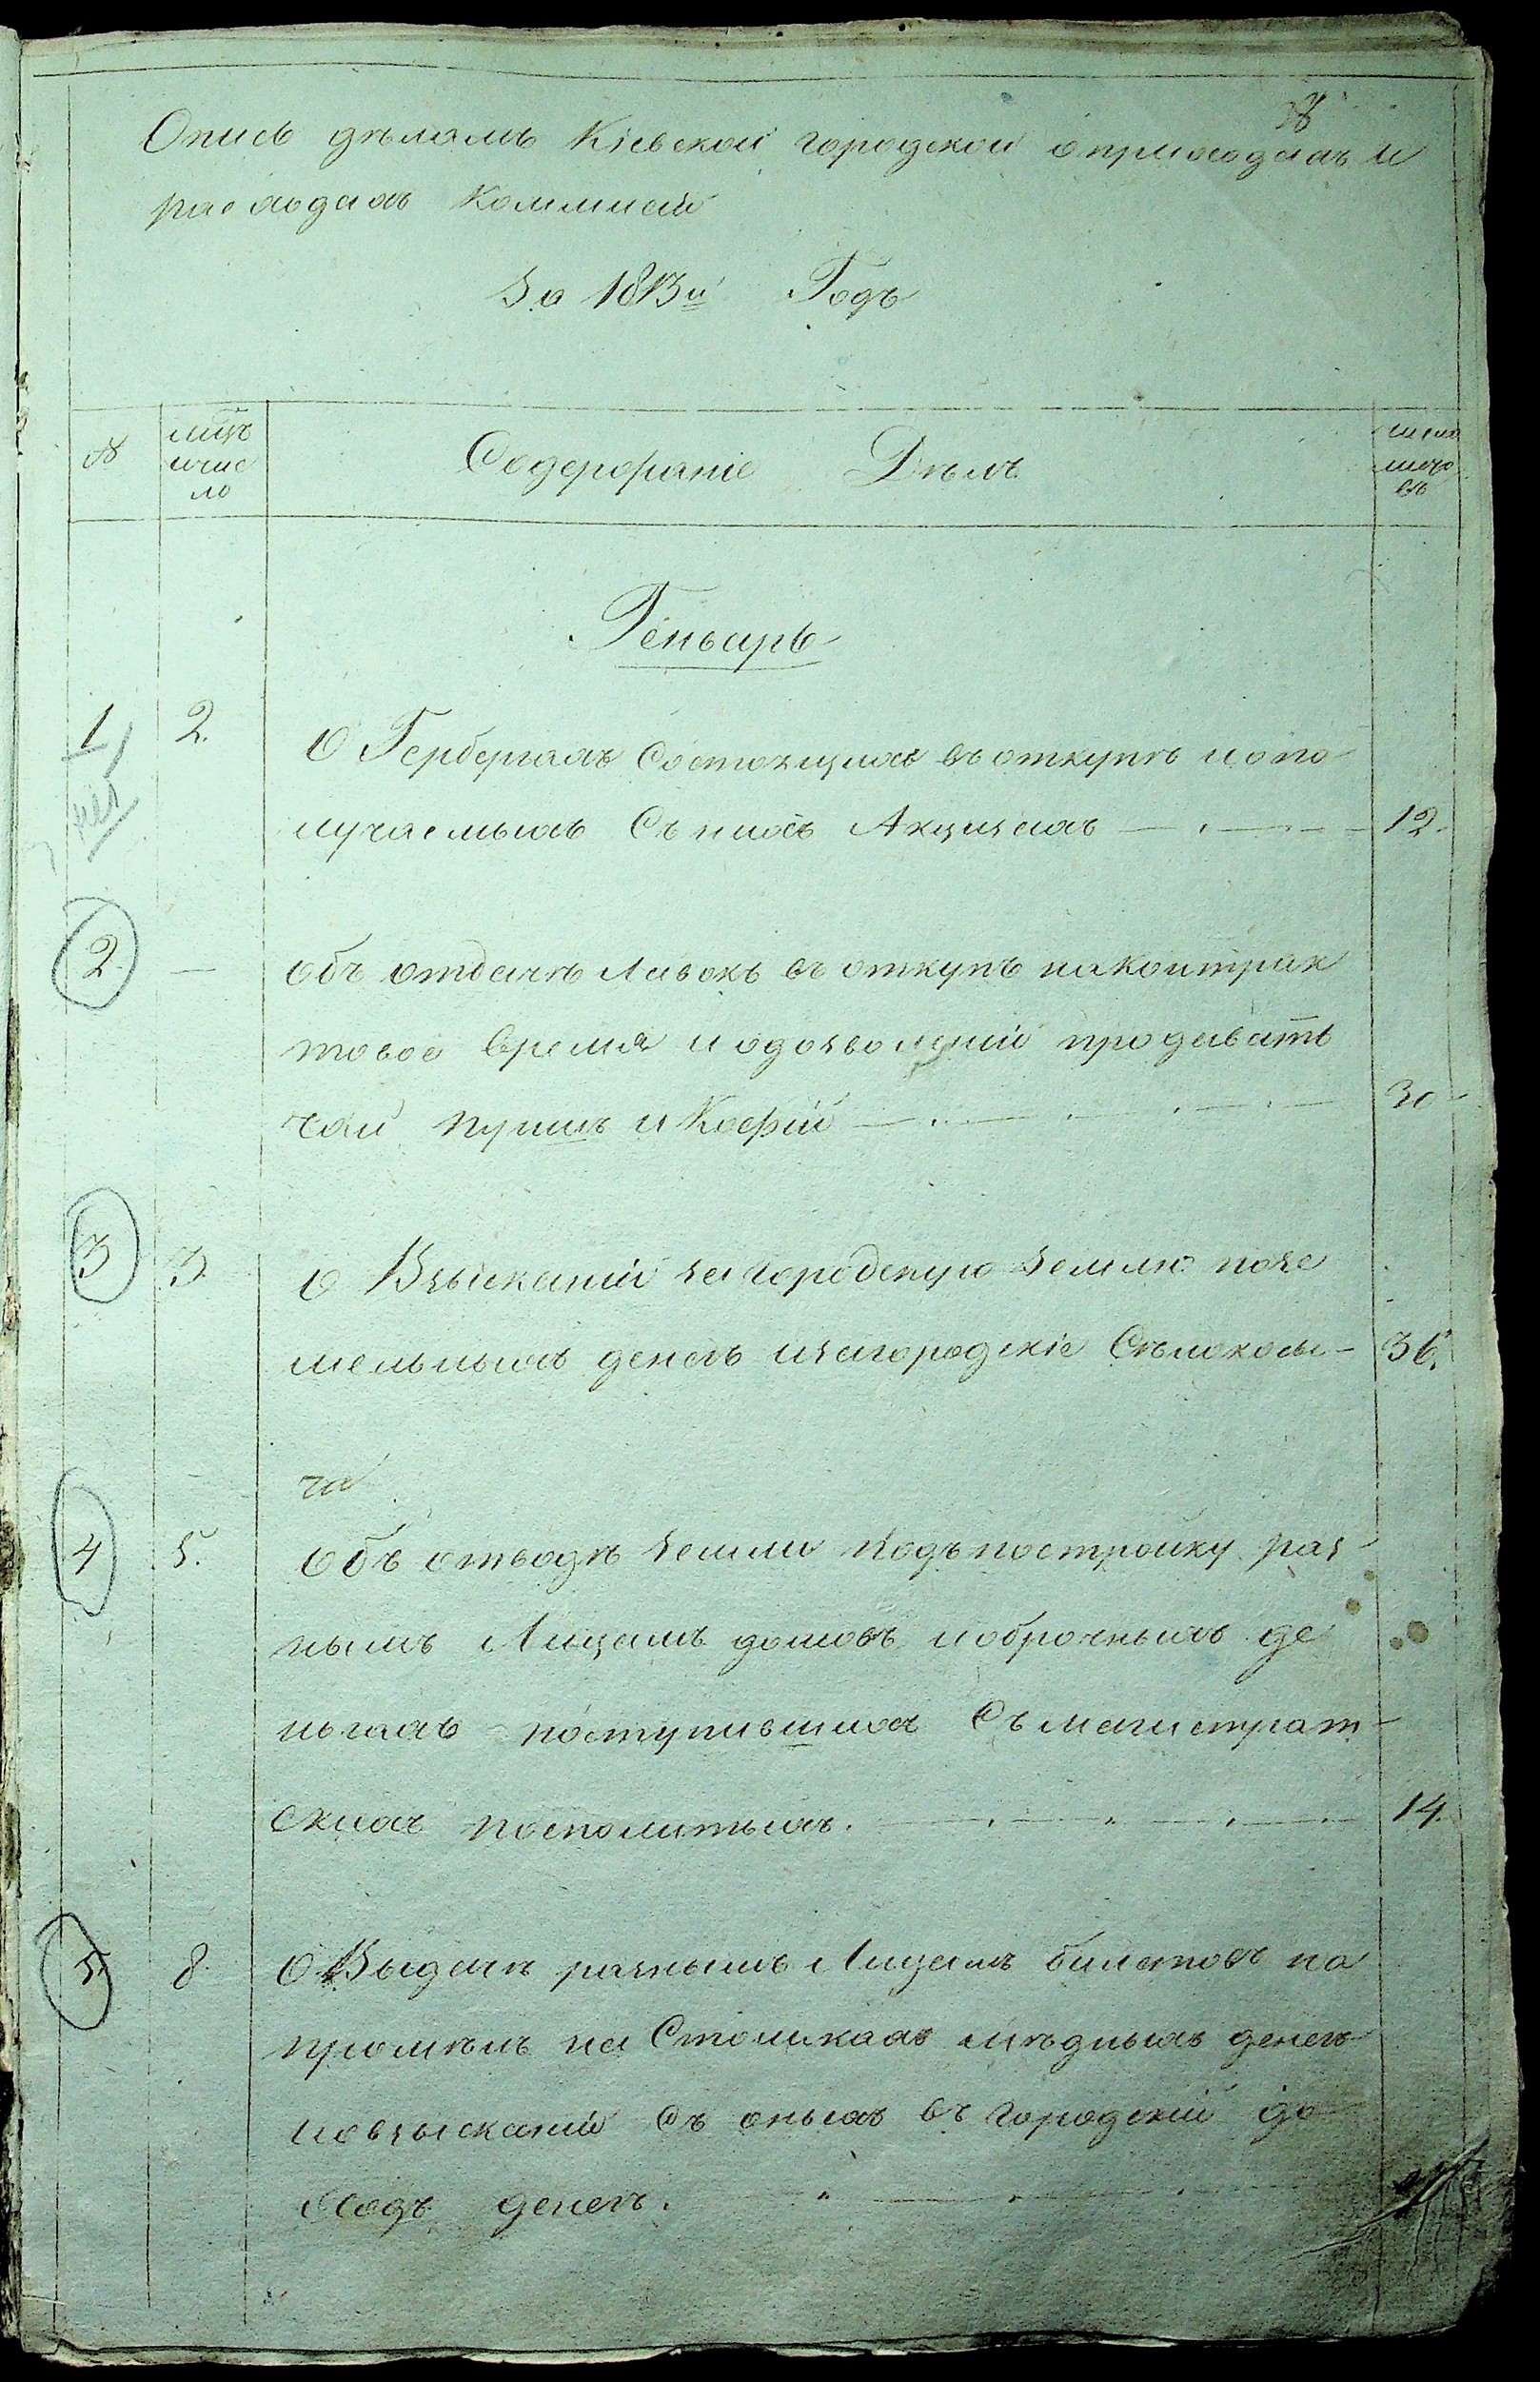 Опись дѣламъ Кіевской городской о приходахъ и
расходахъ Коммисіи
За 1813й Годъ
№
мцъ
и чис
ло
Содержаніе Дѣлъ
число
листо
въ
Генварь
1
2.
О Гербергахъ Состоящихъ въ откупѣ и о по
лучаемыхъ Съ нихъ Акцизахъ
12.
2.
—
Объ отдачѣ Лавокъ въ откупъ на контрак
товое время и о дозволеніи продавать
чай пуншъ и Кофій
30
3
3
О Взысканіи за городскую землю позе
мельныхъ денегъ и за городскіе Сѣнокосы
36.
4
5.
Объ отводѣ земли подъ постройку раз
нымъ Лицамъ домовъ и оброчныхъ де
ньгахъ поступившихъ Съ магистрат
скихъ посполитыхъ.
14.
5.
8
О Выдачѣ разнымъ Лицамъ билетовъ на
промѣнъ на Столикахъ мѣдныхъ денегъ
и о взысканіи Съ оныхъ въ городскій до
ходъ денегъ.